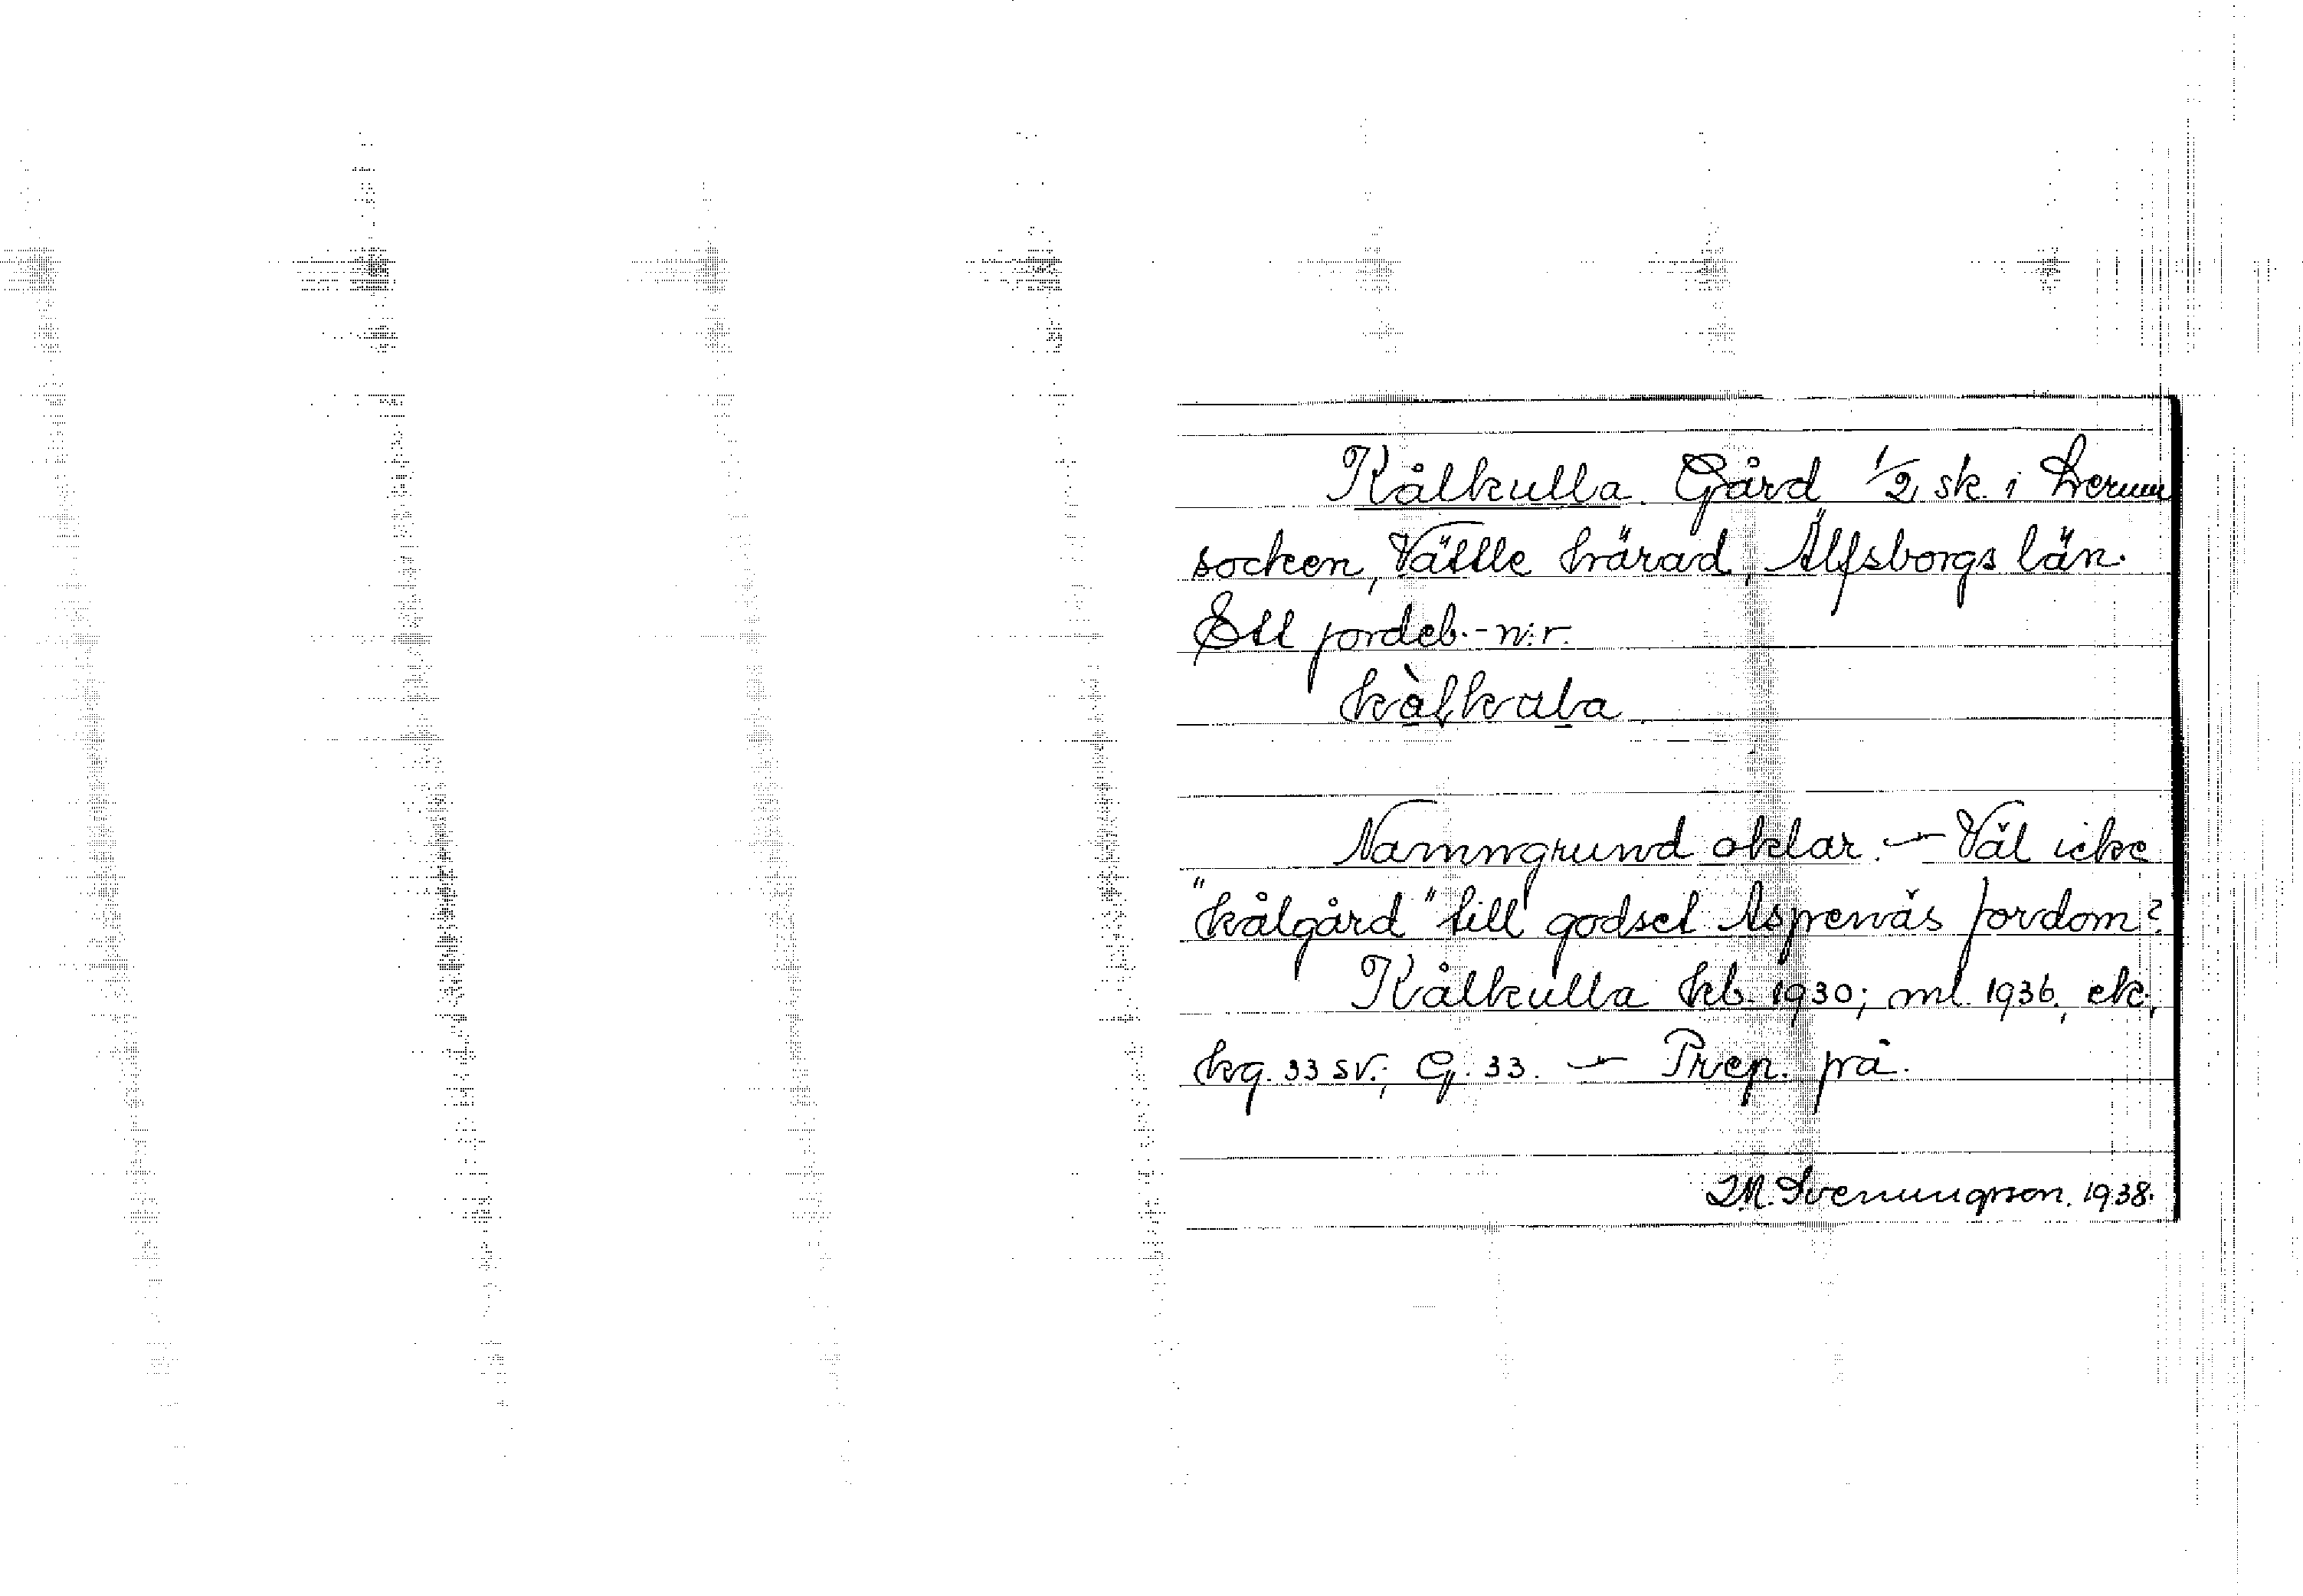 Kålkulla. Gård 1/2 sk. i Lerum
socken, Vättle härad, Älfsborgs län.
Ett jordeb.-n:r.
kàlkula
Namngrund oklar. — Väl icke
"kålgård" till godset Aspenäs fordom?
Kålkulla kb. 1930; ml. 1936, ek.,
kg. 33 sv.; G. 33. — Prep. på.
T.M. Svenungsson. 1938.